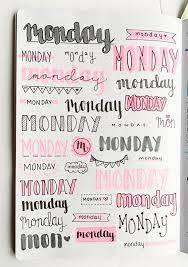 monday
monday
MONDAY monday MONDAY
monday monday
MONDAY monday MONDAY
MONDAY monday mon
MONDAY M monday
monday MONDAY
MONDAY monday
monday MONDAY
MONDAY MONDAY
mon monday monday